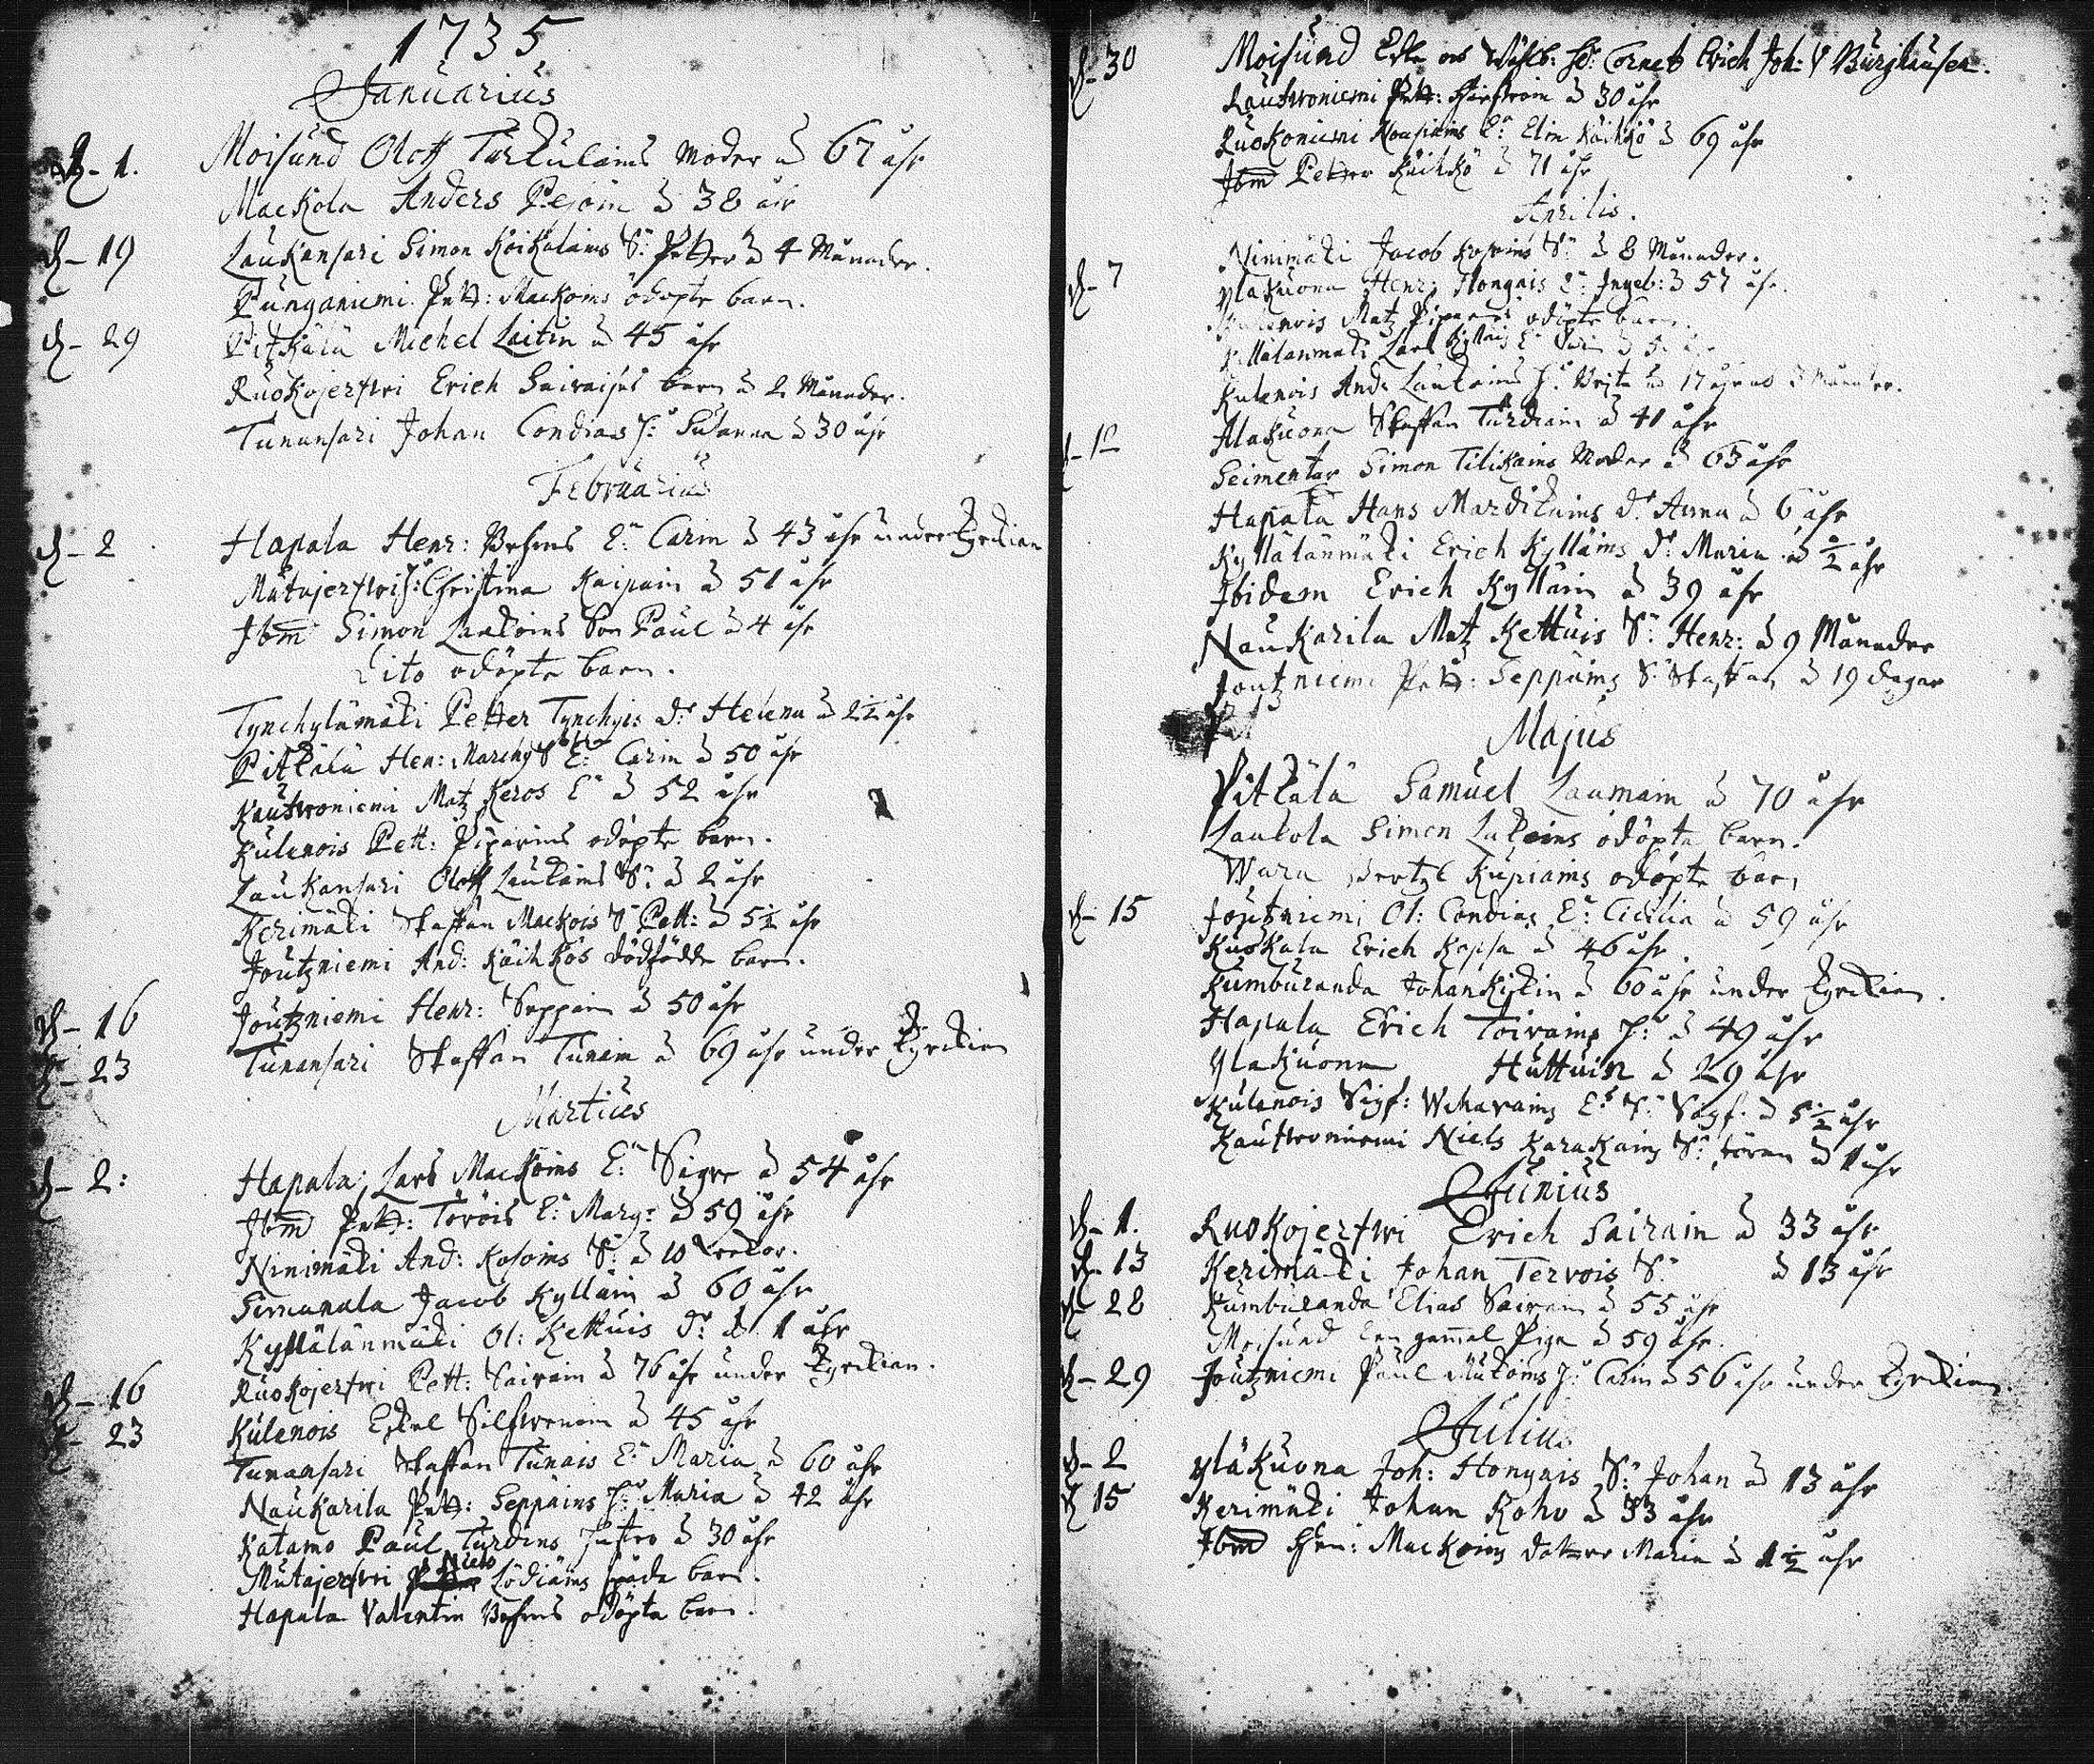 1735
Januarius
d- 1. Moisund Oloff Turkulains Moder à 67 åhr
Mackola Anders Pesoin à 38 åhr
d- 19 Laukansari Simon Koikalains S: Petter à 4 Månader.
Punganiemi Pett: Mackoins odöpte barn.
d- 29 Pitkälä Michel Laitin à 45 åhr
Ruokojerfwi Erich Sairaises barn à 2 Månader.
Tunansari Johan Condias H: Susanna à 30 åhr
Februarius
d- 2 Hapala Henr: Behms E: Carin à 43 åhr under Kyrckian
Mätäjerfwi H: Christina Kaipain à 51 åhr
Ibm Simon Laukoins Son Paul à 4 åhr
Dito odöpte barn.
Tynchylämäki Petter Tynchyis d: Helena à 2½ åhr
Pitkälä Hen: Marchys E: Carin à 50 åhr
Kautwoniemi Matz Keros E: à 52 åhr
Kulenois Pett: Piparins odöpte barn.
Laukansari Oloff Laukains S: à 2 åhr
Kerimäki Staffan Mackois S Pett: à 5½ åhr
Joutzniemi And: Käihkös dödfödde barn.
d- 16 Joutzniemi Henr: Seppäin à 50 åhr
d- 23 Tunansari Staffan Tunain à 69 åhr under Kyrckian
Martius
d- 2: Hapala Lars Mackoins E: Sigre à 54 åhr
Ibm Pett: Töröis E: Marg: à 59 åhr
Ninimäki And: Kosoins S: à 10 Weckor.
Simunala Jacob Kylläin à 60 åhr
Kyllälänmäki Ol: Kettuis d: à 1 åhr
Ruokojerfwi Pett: Sairain à 76 åhr under Kyrckian.
d- 16 Kulenois Eskel Silfwenoin à 45 åhr
d- 23 Tunansari Staffan Tunais E: Maria à 60 åhr
Naukarila Pett: Seppäins H: Maria à 42 åhr
Katamo Paul Turdins Hustro à 30 åhr
Mätäjerfwi Niels Lödiäins späda barn.
Hapala Valentin Behms odöpta barn.
d- 30 Moisund Edle och Wälb: Hr: Cornet Erich Joh: V Burghausen.
Rautwoniemi Pett: à 30 åhr
Ruokoniemi Koupiains E: Elin Käihkö à 69 åhr
Ibm Petter Käihkö à 71 åhr
Aprilis.
Ninimäki Jacob Kosoins S: à 8 Månader.
d- 7 Ylakuona Henr: Hongais E: Ingeb: à 57 åhr.
Kulenois Matz Piparins odöpte barn.
Kyllälänmäki Lars Kylläis E: Carin à
Kulenois And: Laukains H: Brita à 17 åhr och 3 Månader.
Alakuona Staffan Turdiain à 41 åhr
Seimentar Simon Tilikains Moder à 63 åhr
Hapala Hans Mardikains d: Anna à 6 åhr
Kyllälänmäki Erich Kylläins d: Maria à ½ åhr
Ibidem Erich Kylläin à 39 åhr
Naukarila Matz Kettuis S: Henr: à 9 Månader
Joutzniemi Pett: Seppäins S: Staffan à 19 dagar
Majus
Pitkälä Samuel Laumain à 70 åhr
Laukola Simon Lukoins odöpta barn.
Wara Bertzl Kupiains odöpte barn
d- 15 Joutzniemi Ol: Condias E: Cicilia à 59 åhr
Kuokala Erich Kopsa à 46 åhr.
Kumburanda Johan Kiskin à 60 åhr under Kyrckian.
Hapala Erich Toivains H: à 49 åhr
Ylakuona Huttuin à 29 åhr
Kulenois Sigf: Wehavains E: S: Sigf. à 5½ åhr
Kautwoniemi Niels Karakains S: Jöran à 1 åhr
Junius
d- 1. Ruokojerfwi Erich Sairain à 33 åhr
d- 13 Kerimäki Johan Tervois S: à 13 åhr
d- 28 Kumburanda Elias Sairain à 55 åhr
Moisund En gammal Piga à 59 åhr.
d- 29 Joutzniemi Paul Mukoins H: Carin à 56 åhr under Kyrckian.
Julius
d- 2 Yläkuona Joh: Hongais S: Johan à 13 åhr
d 15 Kerimäki Johan Koho à 33 åhr
Ibm Hen: Mackoins dotter Maria à 1½ åhr